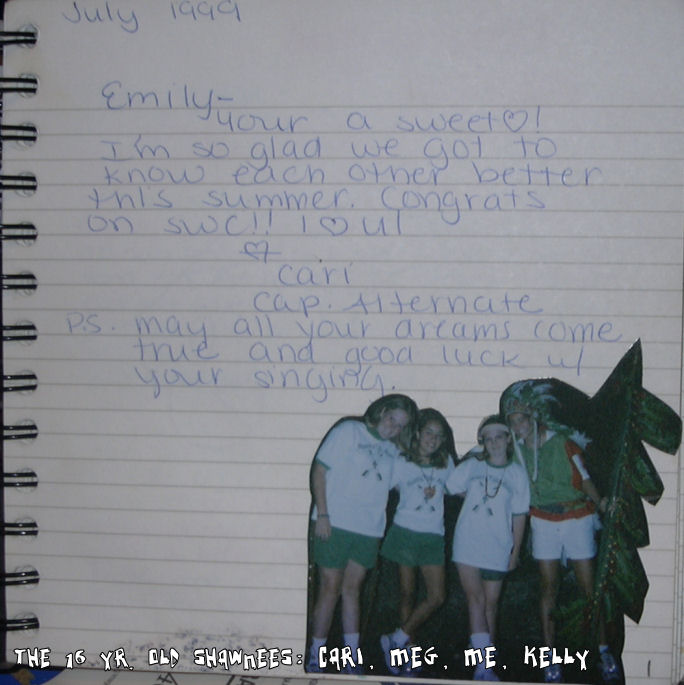 July 1999
Emily-
your a sweet♡!
I'm so glad we got to
know each other better
this summer. Congrats
on swc!! I ♡ U!
cari
cap. Alternate
P.S. may all your dreams come
true and good luck w/
your singing.
THE 16 YR. OLD SHAWNEES: CARI, MEG, ME, KELLY